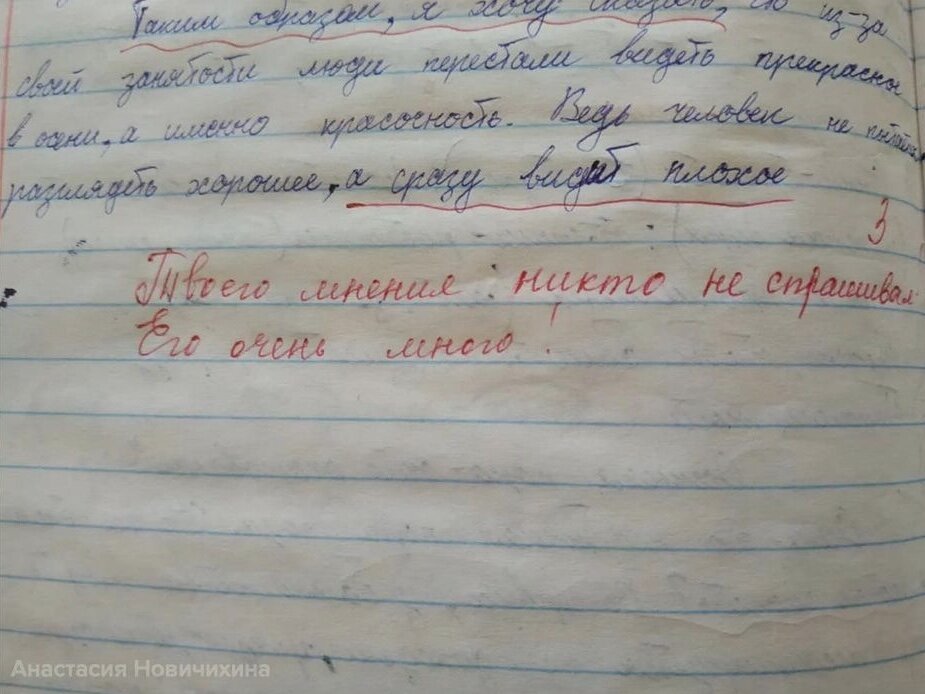 Таким образом, я хочу сказать, что из-за
своей занятости люди перестали видеть прекрасное
в осени, а именно красочность. Ведь человек не пытается
разглядеть хорошее, а сразу видит плохое
3
Твоего мнения никто не спрашивал
Его очень много!
Анастасия Новичихина